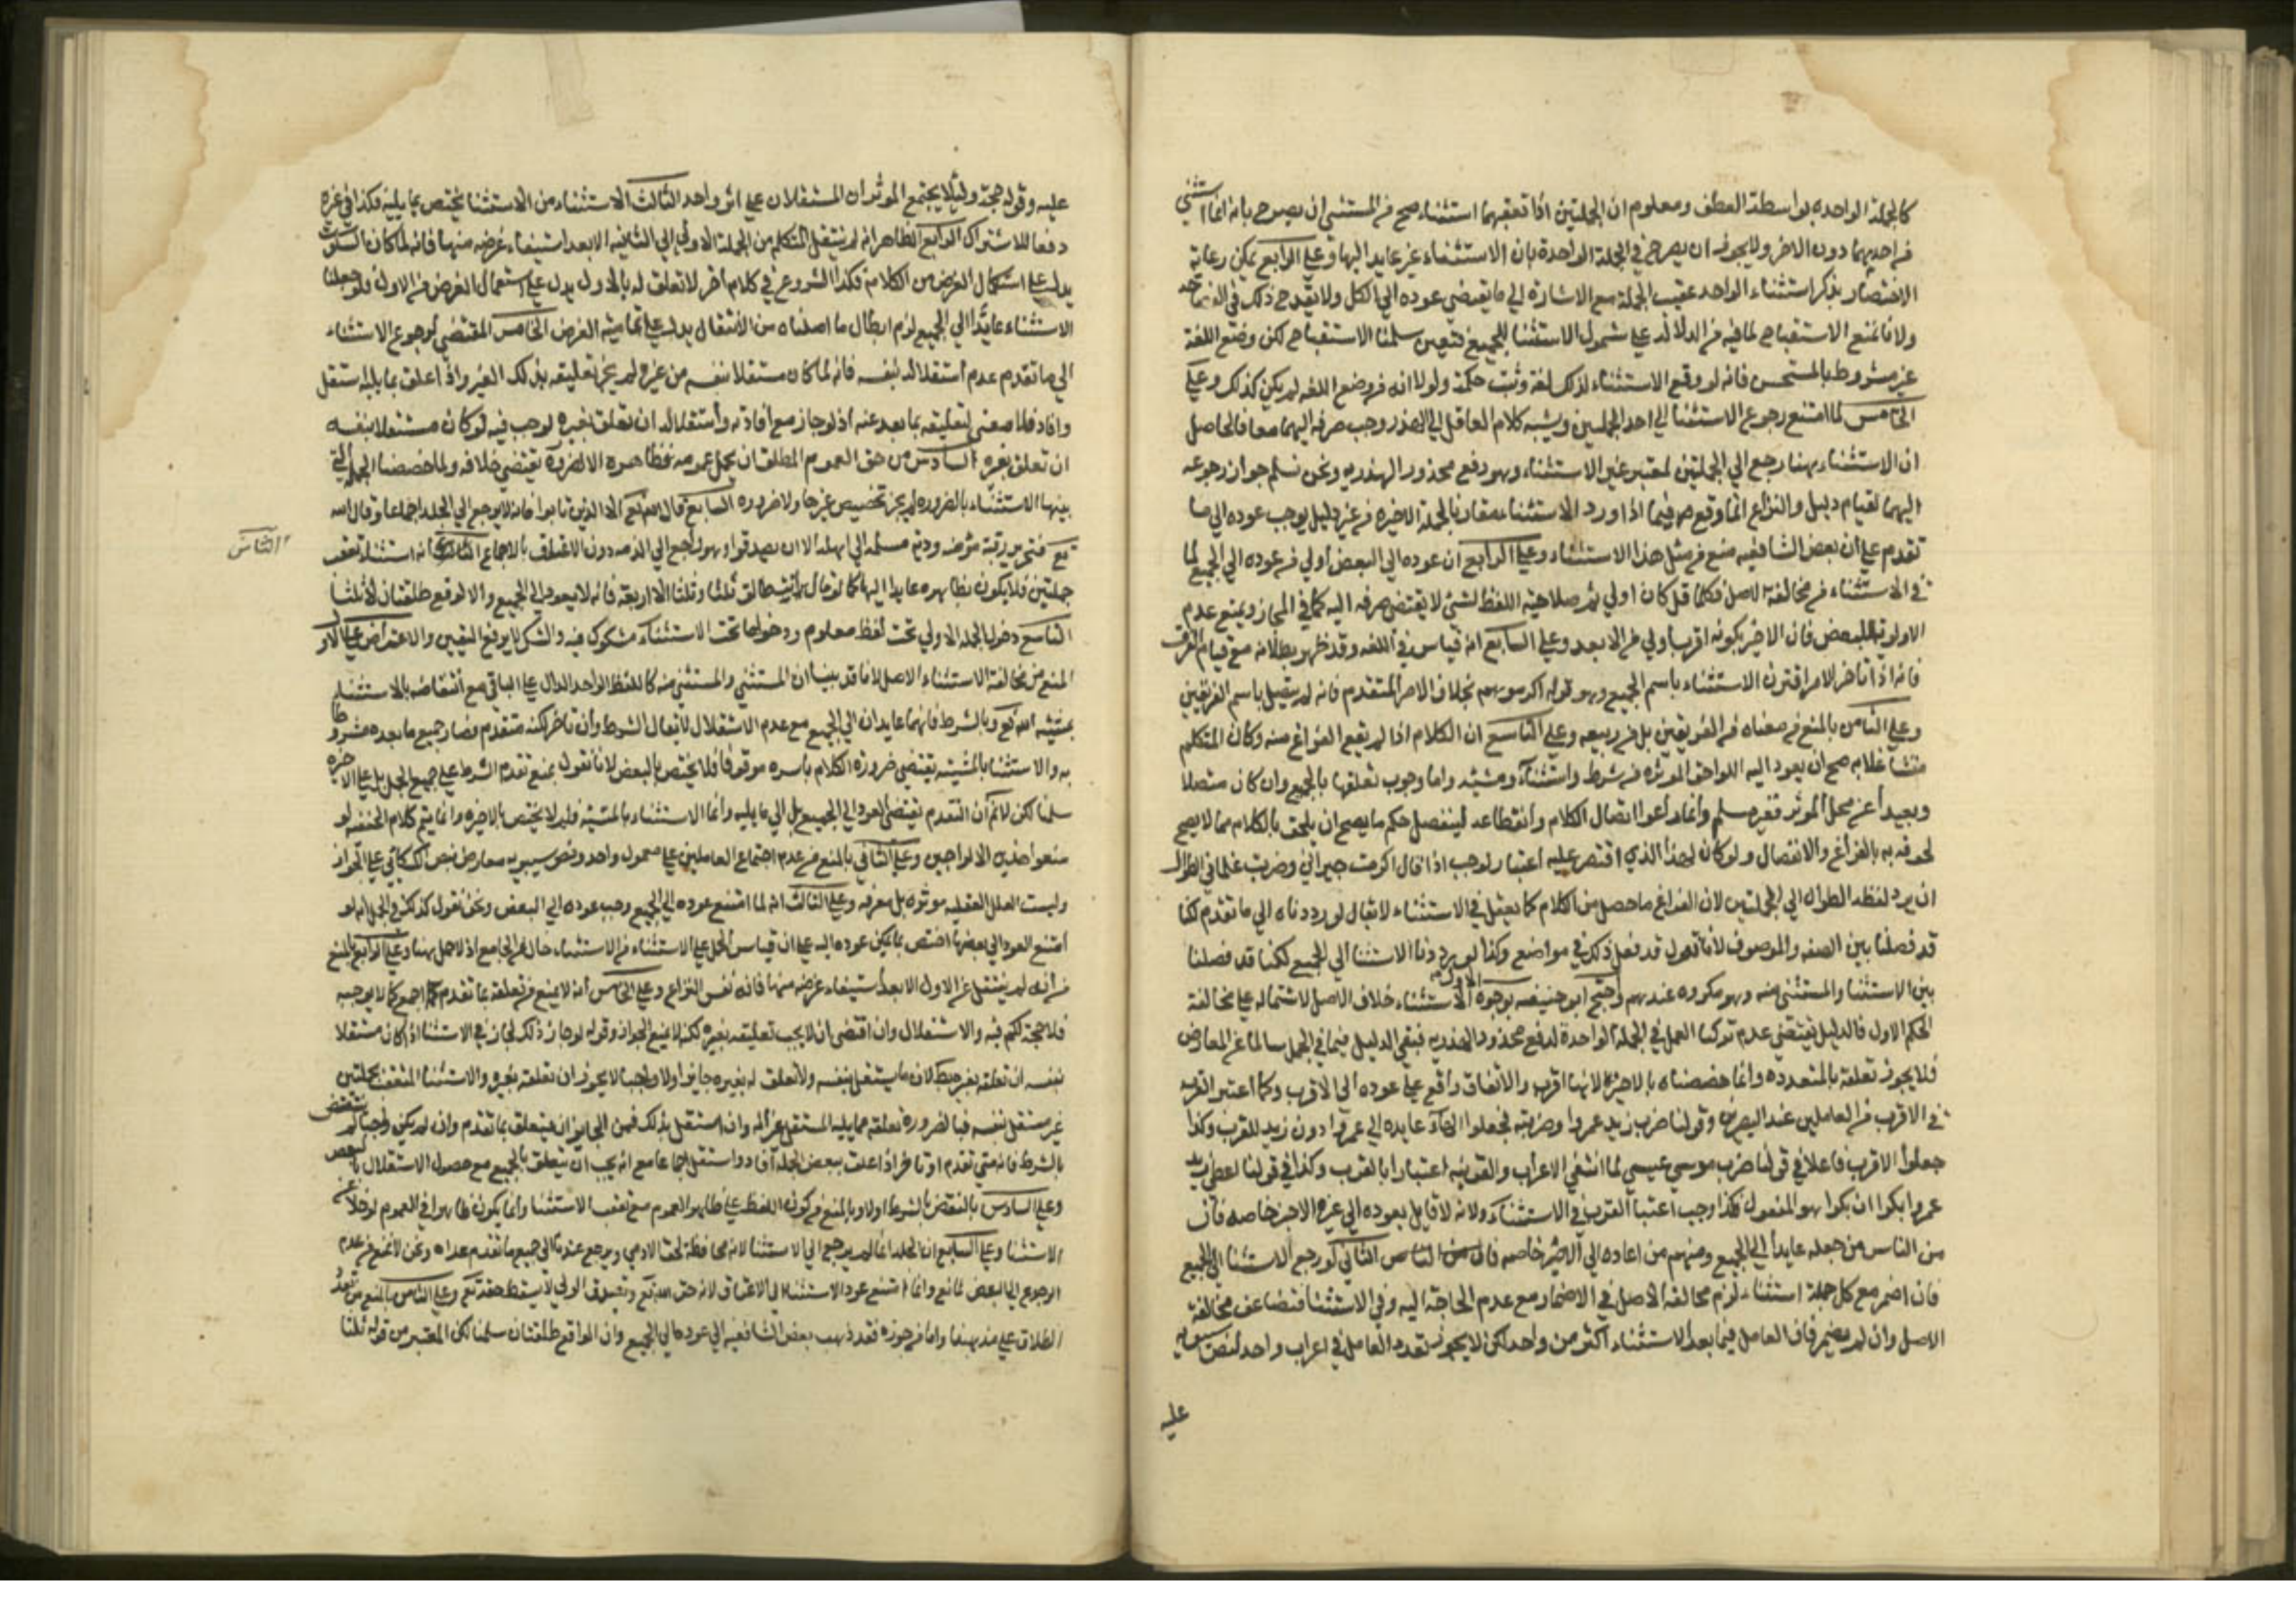 كالجملة الواحده بواسطة العطف ومعلوم ان الجملتين اذا تعقبهما استثناء صح من المستثنى ان يصرح بانه انما استثنى
من احديهما دون الاخر ولا يجوز ان يصرح في الجملة الواحدة بان الاستثناء غير عايد اليها وعلى الرابع يمكن رعاية
الاختصار بذكر استثناء الواحد عقيب الجملة مع الاشارة الى ما يقتضي عوده الى الكل ولا يقدح ذلك في
ولانا نمنع الاستقباح لما فيه من الدلالة على شمول الاستثنا للجميع فتعين سلمنا الاستقباح لكن وضع اللغة
غير مشروط بالمستحسن فانه لو وقع الاستثناء لذلك لغة وثبت حكمه ولولا انه من وضع اللغه لم يكن كذلك وعلى
الخامس لما امتنع رجوع الاستثنا الى احد الجملتين ويشبه كلام العاقل الى الهذر وجب صرفه اليهما معا فالحاصل
ان الاستثناء بهنا رجع الى الجملتين لمعتبر غير الاستثناء وهو دفع محذور الهذريه ونحن نسلم جواز رجوعه
اليهما لقيام دليل والنزاع انما وقع فيما اذا ورد الاستثناء مقارنا بالجملة الاخيره من غير دليل يوجب عوده الى ما
تقدم على ان بعض الشافعيه منع من مثل هذا الاستثناء وعلى الرابع ان عوده الى البعض اولى من عوده الى الجميع لما
في الاستثناء من مخالفة الاصل فكلما قل كان اولى ثم صلاحية اللفظ لشئ لا يقتضى صرفه اليه كما في المجاز ونمنع عدم
الاولوية للبعض فان الاخير بكونه اقرب اولى من الابعد وعلى السابع انه قياس في اللغه وقد ظهر بطلانه مع قيام الفرق
فانه اذا تاخر الامر اقترن الاستثناء باسم الجميع وهو قوله اكرموهم بخلاف الامر المتقدم فانه لم يتصل باسم الفريقين
وعلى الثامن بالمنع من معناه من الفريقين بل من ربيعه وعلى التاسع ان الكلام اذا لم يقع الفراغ منه وكان المتكلم
متشاغلا به صح ان يعود اليه اللواحق الموثره من شرط واستثناء ومشيه واما وجوب تعلقها بالجميع وان كان متصلا
وبعيدا عن محل الموثر فغير مسلم وانما راعوا اتصال الكلام وانقطاعه لينفصل حكم ما يصح ان يلحق بالكلام مما لا يصح
لحوقه به بالفراغ والانفصال ولو كان لهذا الذي اقتصر عليه اعتبار لوجب اذا قال اكرمت جيراني وضربت غلماني الطوال
ان يرد لفظه الطوال الى الجملتين لان الفراغ ما حصل من الكلام كما يعتل في الاستثناء لا يقال لو رددناه الى ما تقدم لكنا
قد فصلنا بين الصفه والموصوف لانا نقول قد فعل ذلك في مواضع وكذا لو رددنا الاستثنا الى الجميع لكنا قد فصلنا
بين الاستثنا والمستثنى منه وهو مكروه عندهم واحتج ابو حنيفه بوجوه الاول الاستثناء خلاف الاصل لاشتماله على مخالفة
الحكم الاول فالدليل يقتضي عدم تركنا العمل في الجملة الواحدة لدفع محذور الهذريه فبقى الدليل فيما في الجمل سالما عن المعارض
فلا يجوز تعلقه بالمتعدده وانما خصصناه بالاخيرة لانها اقرب والاتفاق واقع على عوده الى الاقرب وكما اعتبر القرب
في الاقرب من العاملين عند البصريين وقولنا ضرب زيد عمروا وضربته فجعلوا الهآء عايده الى عمرو دون زيد للقرب وكذا
جعلوا الاقرب فاعلا في قولنا ضرب موسى عيسى لما انتفى الاعراب والقرينه اعتبارا بالقرب وكذا في قولنا اعطى زيد
عمروا بكرا ان بكرا هو المفعول فكذا وجب اعتبار القرب في الاستثناء ولانه لا قايل بعوده الى غير الاخير خاصه فان
من الناس من جعله عايدا الى الجميع ومنهم من اعاده الى الاخير خاصه الثاني لو رجع الاستثنا الى الجميع
فان اضمر مع كل جملة استثناء لزم مخالفة الاصل في الاضمار مع عدم الحاجة اليه وفي الاستثنا فتضاعف مخالفة
الاصل وان لم يضمر فان العامل فيما بعد الاستثناء اكثر من واحد لكن لا يجوز تعدد العامل في اعراب واحد لنص سيبويه
عليه
عليه وقوله حجة ولئلا يجتمع الموثران المستقلان على اثر واحد الثالث الاستثناء من الاستثنا يختص بما يليه فكذا في غيره
دفعا للاشتراك الرابع الظاهر انه لم ينتقل المتكلم من الجملة الاولى الى الثانيه الا بعد استيفاء غرضه منها فانه لما كان السكوت
يدل على استكمال الغرض من الكلام فكذا الشروع في كلام اخر لا تعلق له بالاول يدل على استكمال الغرض من الاول فلو جعلنا
الاستثناء عايدا الى الجميع لزم ابطال ما اصلناه من الانتقال يدل على تمامية الغرض الخامس المقتضي لرجوع الاستثناء
الى ما تقدم عدم استقلاله بنفسه فانه لما كان مستقلا بنفسه من غيره لم يجز تعليقه بذلك الغير واذا علق بما يليه استقل
وافاد فلا معنى لتعليقه بما بعد عنه اذ لو جاز مع افادته واستقلاله ان تعلق بغيره لوجب فيه لو كان مستقلا بنفسه
ان تعلق بغيره السادس من حق العموم المطلق ان يحمل عمومه فظاهره الا لضرورة تقتضي خلافه ولما خصصنا الجملة التي
يليها الاستثناء بالضروره لم يجز تخصيص غيرها ولا ضروره السابع قال الله تع الا الذين تابوا فانه لا يرجع الى الجلد اجماعا وقال الله
تع فتحرير رقبة مؤمنه ودية مسلمه الى اهله الا ان يصدقوا وهو راجع الى الديه دون الاعتاق بالاجماع انه استثناء تعقب
الثامن
جملتين فلا يكون بظاهره عايدا اليهما كما لو قال انت طالق ثلثا وثلثا الا اربعة فانه لا يعود الى الجميع والا لوقع طلقتان لا ثلثا
التاسع دخول الجملة الاولى تحت لفظ معلوم ودخولها تحت الاستثناء مشكوك فيه والشك لا يرفع اليقين والاعتراض على الاول
المنع من مخالفة الاستثناء الاصل لانا قد بينا ان المستثنى والمستثنى منه كاللفظ الواحد الدال على الباقي مع انتقاضه بالاستثناء
بمشية الله تع وبالشرط فانهما عايدان الى الجميع مع عدم الاستقلال لا يقال الشرط وان تاخر لكنه متقدم فصار جميع ما بعده مشروطا
به والاستثنا بالمشيئه يقتضي ضرورة الكلام باسره موقوفا فلا يختص بالبعض لانا نقول نمنع تقدم الشرط على جميع الجمل بل على الاخيره
سلمنا لكن لا نم ان التقدم يقتضى العود الى الجميع بل الى ما يليه وانما الاستثناء بالمشيئة فلم لا يختص بالاخيره وانما يتم كلام الحنفيه لو
منعوا هذين الالزامين وعلى الثاني بالمنع من عدم اجتماع العاملين على معمول واحد ونص سيبويه معارض بنص الكسائي على الجواز
وليست العلل العقليه موثره بل معرفه وعلى الثالث انه لما امتنع عوده الى الجميع وجب عوده الى البعض ونحن نقول كذلك في الجمل انه لو
امتنع العود الى بعضها اختص بما يمكن عوده اليه على ان قياس الجمل على الاستثناء من الاستثناء خال عن الجامع اذ لا جمل بهنا وعلى الرابع بالمنع
من انه لم ينتقل عن الاول الا بعد استيفاء غرضه منها فانه نفس النزاع وعلى الخامس انه لا يمنع من تعلقه بما تقدم كما لا يوجبه
فلا حجة لكم فيه والاستقلال وان اقتضى ان لا يجب تعليقه بغيره لكنه لا يمنع الجواز وقوله لو جاز ذلك لجاز في الاستثنا اذا كان مستقلا
بنفسه ان تعلقه بغير لان ما يستقل بنفسه ولا تعلق له بغيره جايزا ولا واجبا لا يجوز ان تعلقه بغيره والاستثنا المتعقب بجملتين
غير مستقل بنفسه فبالضرورة تعلقه بما يليه المستقل وان استقل بذلك فمن الجايز ان يتعلق بما تقدم وان لم يكن واجبا ثم ينتقض
بالشرط فانه متى تقدم او تاخر اذا علق ببعض الجمله افاد واستقل اجماعا مع انه يجب ان يتعلق بالجميع مع حصول الاستقلال بالبعض
وعلى السادس بالنقض بالشرط اولا وبالمنع من كون اللفظ على ظاهر العموم مع تعقب الاستثنا وانما يكون ظاهرا في العموم لو خلا عن
الاستثنا وعلى السابع ان الجلد انما لم يرجع الى الاستثنا لانه محافظة لحق الادمي ويرجع عندنا الى جميع ما تقدم عداه ونحن لا نمنع من عدم
الرجوع الى البعض لمانع وانما امتنع عود الاستثنا الى الاعتاق لانه حق الله تع وتصدق الولي لا يسقط حقه تع وعلى الثامن بالمنع من تعدد
الطلاق على مذهبنا واما من جوزه فقد ذهب بعض الشافعيه الى عوده الى الجميع وان الواقع طلقتان سلمنا لكن المعتبر من قوله ثلثا